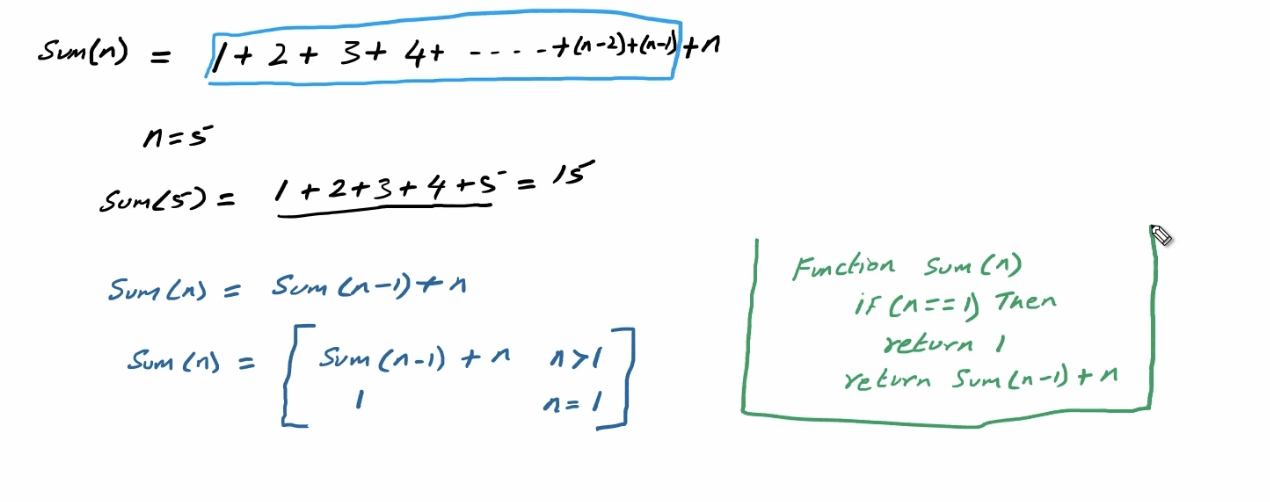 Sum(n) = 1 + 2 + 3 + 4 + - - - - + (n-2) + (n-1) + n
n = 5
Sum(5) = 1 + 2 + 3 + 4 + 5 = 15
Sum(n) = Sum(n-1) + n
Sum(n) = [ Sum(n-1) + n n > 1
1 n = 1 ]
Function Sum(n)
if (n == 1) Then
return 1
return Sum(n-1) + n